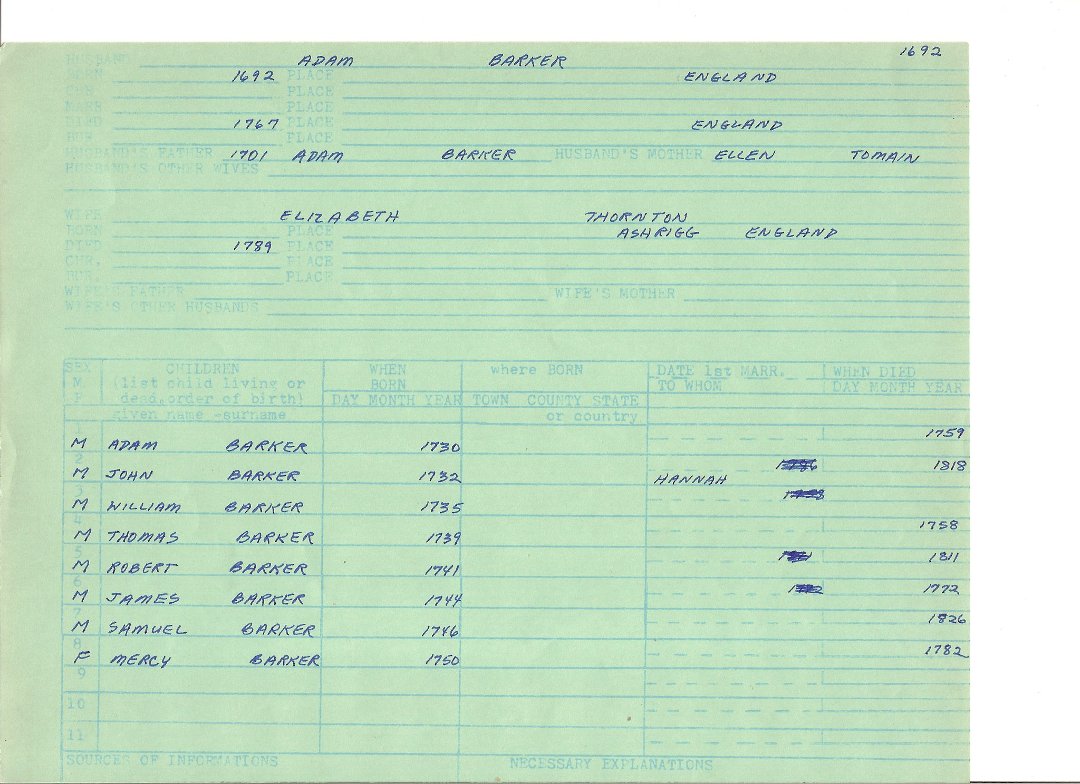 1692
HUSBAND ADAM BARKER
BORN 1692 PLACE ENGLAND
CHR PLACE
MARR PLACE
DIED 1767 PLACE ENGLAND
BUR. PLACE
HUSBAND'S FATHER 1701 ADAM BARKER HUSBAND'S MOTHER ELLEN TOMAIN
HUSBAND'S OTHER WIVES
WIFE ELIZABETH THORNTON
BORN PLACE ASHRIGG ENGLAND
DIED 1789 PLACE
CHR. PLACE
BUR. PLACE
WIFE'S FATHER WIFE'S MOTHER
WIFE'S OTHER HUSBANDS
SEX CHILDREN WHEN where BORN DATE 1st MARR. WHEN DIED
M. (list child living or BORN TO WHOM DAY MONTH YEAR
F dead,order of birth) DAY MONTH YEAR TOWN COUNTY STATE
given name -surname or country
1 M ADAM BARKER 1730 1759
2 M JOHN BARKER 1732 HANNAH 1818
3 M WILLIAM BARKER 1735
4 M THOMAS BARKER 1739 1758
5 M ROBERT BARKER 1741 1811
6. M JAMES BARKER 1744 1772
7 M SAMUEL BARKER 1746 1826
8 F MERCY BARKER 1750 1782
9
10
11
SOURCES OF INFORMATIONS NECESSARY EXPLANATIONS